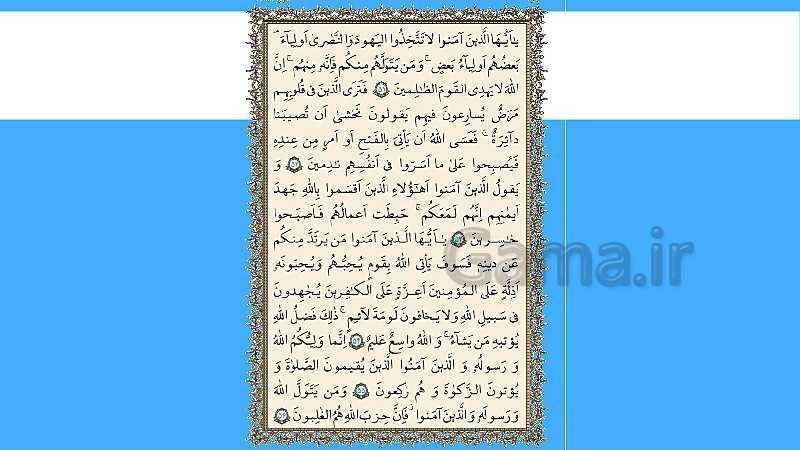 یا اَیُّهَا الَّذینَ آمَنوا لا تَتَّخِذُوا الیَهودَ وَ النَّصٰریٰ اَولِیآءَ ۘ
بَعضُهُم اَولِیآءُ بَعضٍ ۚ وَ مَن یَتَوَلَّهُم مِنکُم فَاِنَّهو مِنهُم ۗ اِنَّ
اللهَ لا یَهدِی القَومَ الظّٰلِمینَ ﴿٥١﴾ فَتَرَی الَّذینَ فی قُلوبِهِم
مَرَضٌ یُسارِعونَ فیهِم یَقولونَ نَخشیٰ اَن تُصیبَنا
دآئِرَةٌ ۚ فَعَسَی اللهُ اَن یَأتِیَ بِالفَتحِ اَو اَمرٍ مِن عِندِهٖ
فَیُصبِحوا عَلیٰ ما اَسَرّوا فی اَنفُسِهِم نٰدِمینَ ﴿٥٢﴾ وَ
یَقولُ الَّذینَ آمَنوا اَهٰٓؤُلاءِ الَّذینَ اَقسَموا بِاللهِ جَهدَ
اَیمٰنِهِم اِنَّهُم لَمَعَکُم ۚ حَبِطَت اَعمالُهُم فَاَصبَحوا
خٰسِرینَ ﴿٥٣﴾ یا اَیُّهَا الَّذینَ آمَنوا مَن یَرتَدَّ مِنکُم
عَن دینِهٖ فَسَوفَ یَأتِی اللهُ بِقَومٍ یُحِبُّهُم وَ یُحِبّونَهو
اَذِلَّةٍ عَلَی المُؤمِنینَ اَعِزَّةٍ عَلَی الکٰفِرینَ یُجٰهِدونَ
فی سَبیلِ اللهِ وَ لا یَخافونَ لَومَةَ لآئِمٍ ۚ ذٰلِکَ فَضلُ اللهِ
یُؤتیهِ مَن یَشآءُ ۚ وَ اللهُ واسِعٌ عَلیمٌ ﴿٥٤﴾ اِنَّما وَلِیُّکُمُ اللهُ
وَ رَسولُهو وَ الَّذینَ آمَنُوا الَّذینَ یُقیمونَ الصَّلوٰةَ وَ
یُؤتونَ الزَّکوٰةَ وَ هُم رٰکِعونَ ﴿٥٥﴾ وَ مَن یَتَوَلَّ اللهَ
وَ رَسولَهو وَ الَّذینَ آمَنوا فَاِنَّ حِزبَ اللهِ هُمُ الغٰلِبونَ ﴿٥٦﴾
Gama.ir